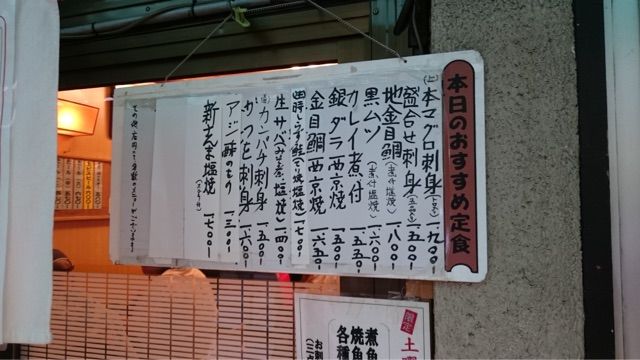 本日のおすすめ定食
(上)本マグロ刺身(中トロ) 一九〇〇-
盛合せ刺身(五点) 一五〇〇-
地金目鯛(煮付 塩焼) 一八〇〇-
黒ムツ(煮付 塩焼) 一六〇〇-
カレイ煮付 一五五〇-
銀ダラ西京焼 一五五〇-
金目鯛西京焼 一六五〇-
時しらず鮭 塩焼 一七〇〇-
生サバ(みそ煮、塩焼) 一四〇〇-
カンパチ刺身 一五〇〇-
かつを刺身 一六〇〇-
アジ酢のもの 一三〇〇-
新さんま塩焼 一七〇〇-
その他 店内に多数のメニューがございます
限定
土曜
煮魚
焼魚
各種
お刺